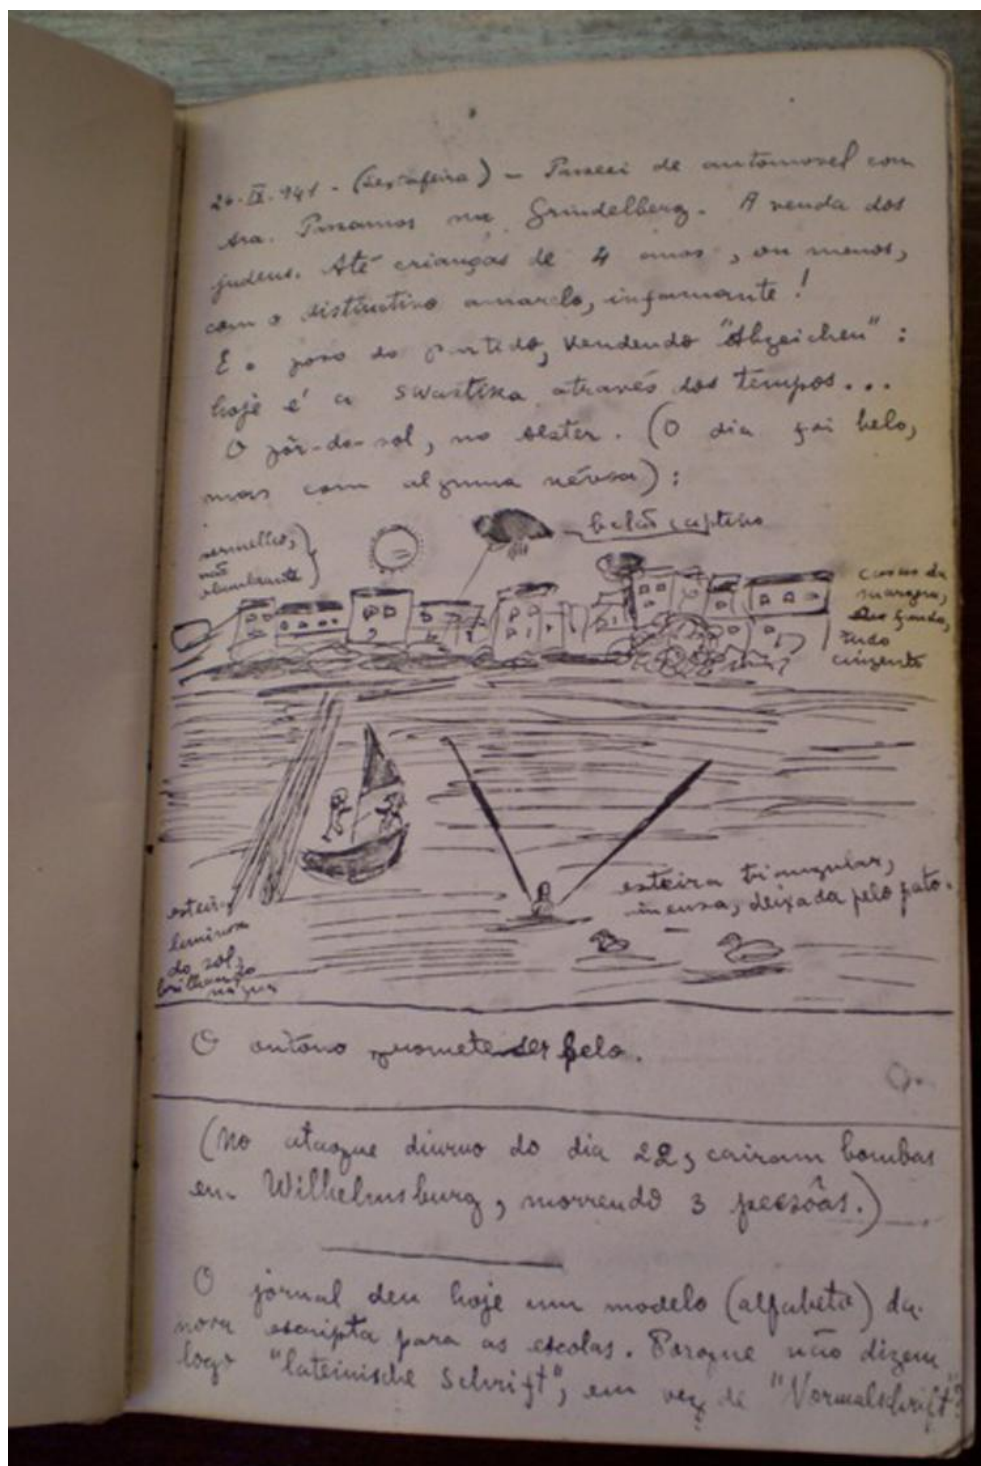 26-IX-941 - (Sexta-feira) - Passei de automovel com
Ara. Passamos na Grindelberg. A venda dos
judeus. Até crianças de 4 anos, ou menos,
com o distinctivo amarelo, infamante!
E o povo do partido, vendendo "Abzeichen":
hoje é a swastika através dos tempos...
O pôr-do-sol, no Alster. (O dia foi belo,
mas com alguma névoa):
balão captivo
vermelho,
não
deslumbrante
casas da
margem,
ao fundo,
tudo
cinzento
esteira triangular,
imensa, deixada pelo pato.
esteira
luminosa
do sol,
brilhando
n'água
O outono promete ser belo.
(No ataque diurno do dia 22, cairam bombas
em Wilhelmsburg, morrendo 3 pessôas.)
O jornal deu hoje um modelo (alfabeto) da
nova escripta para as escolas. Porque não dizem
logo "lateinische Schrift", em vez de "Normalschrift"?